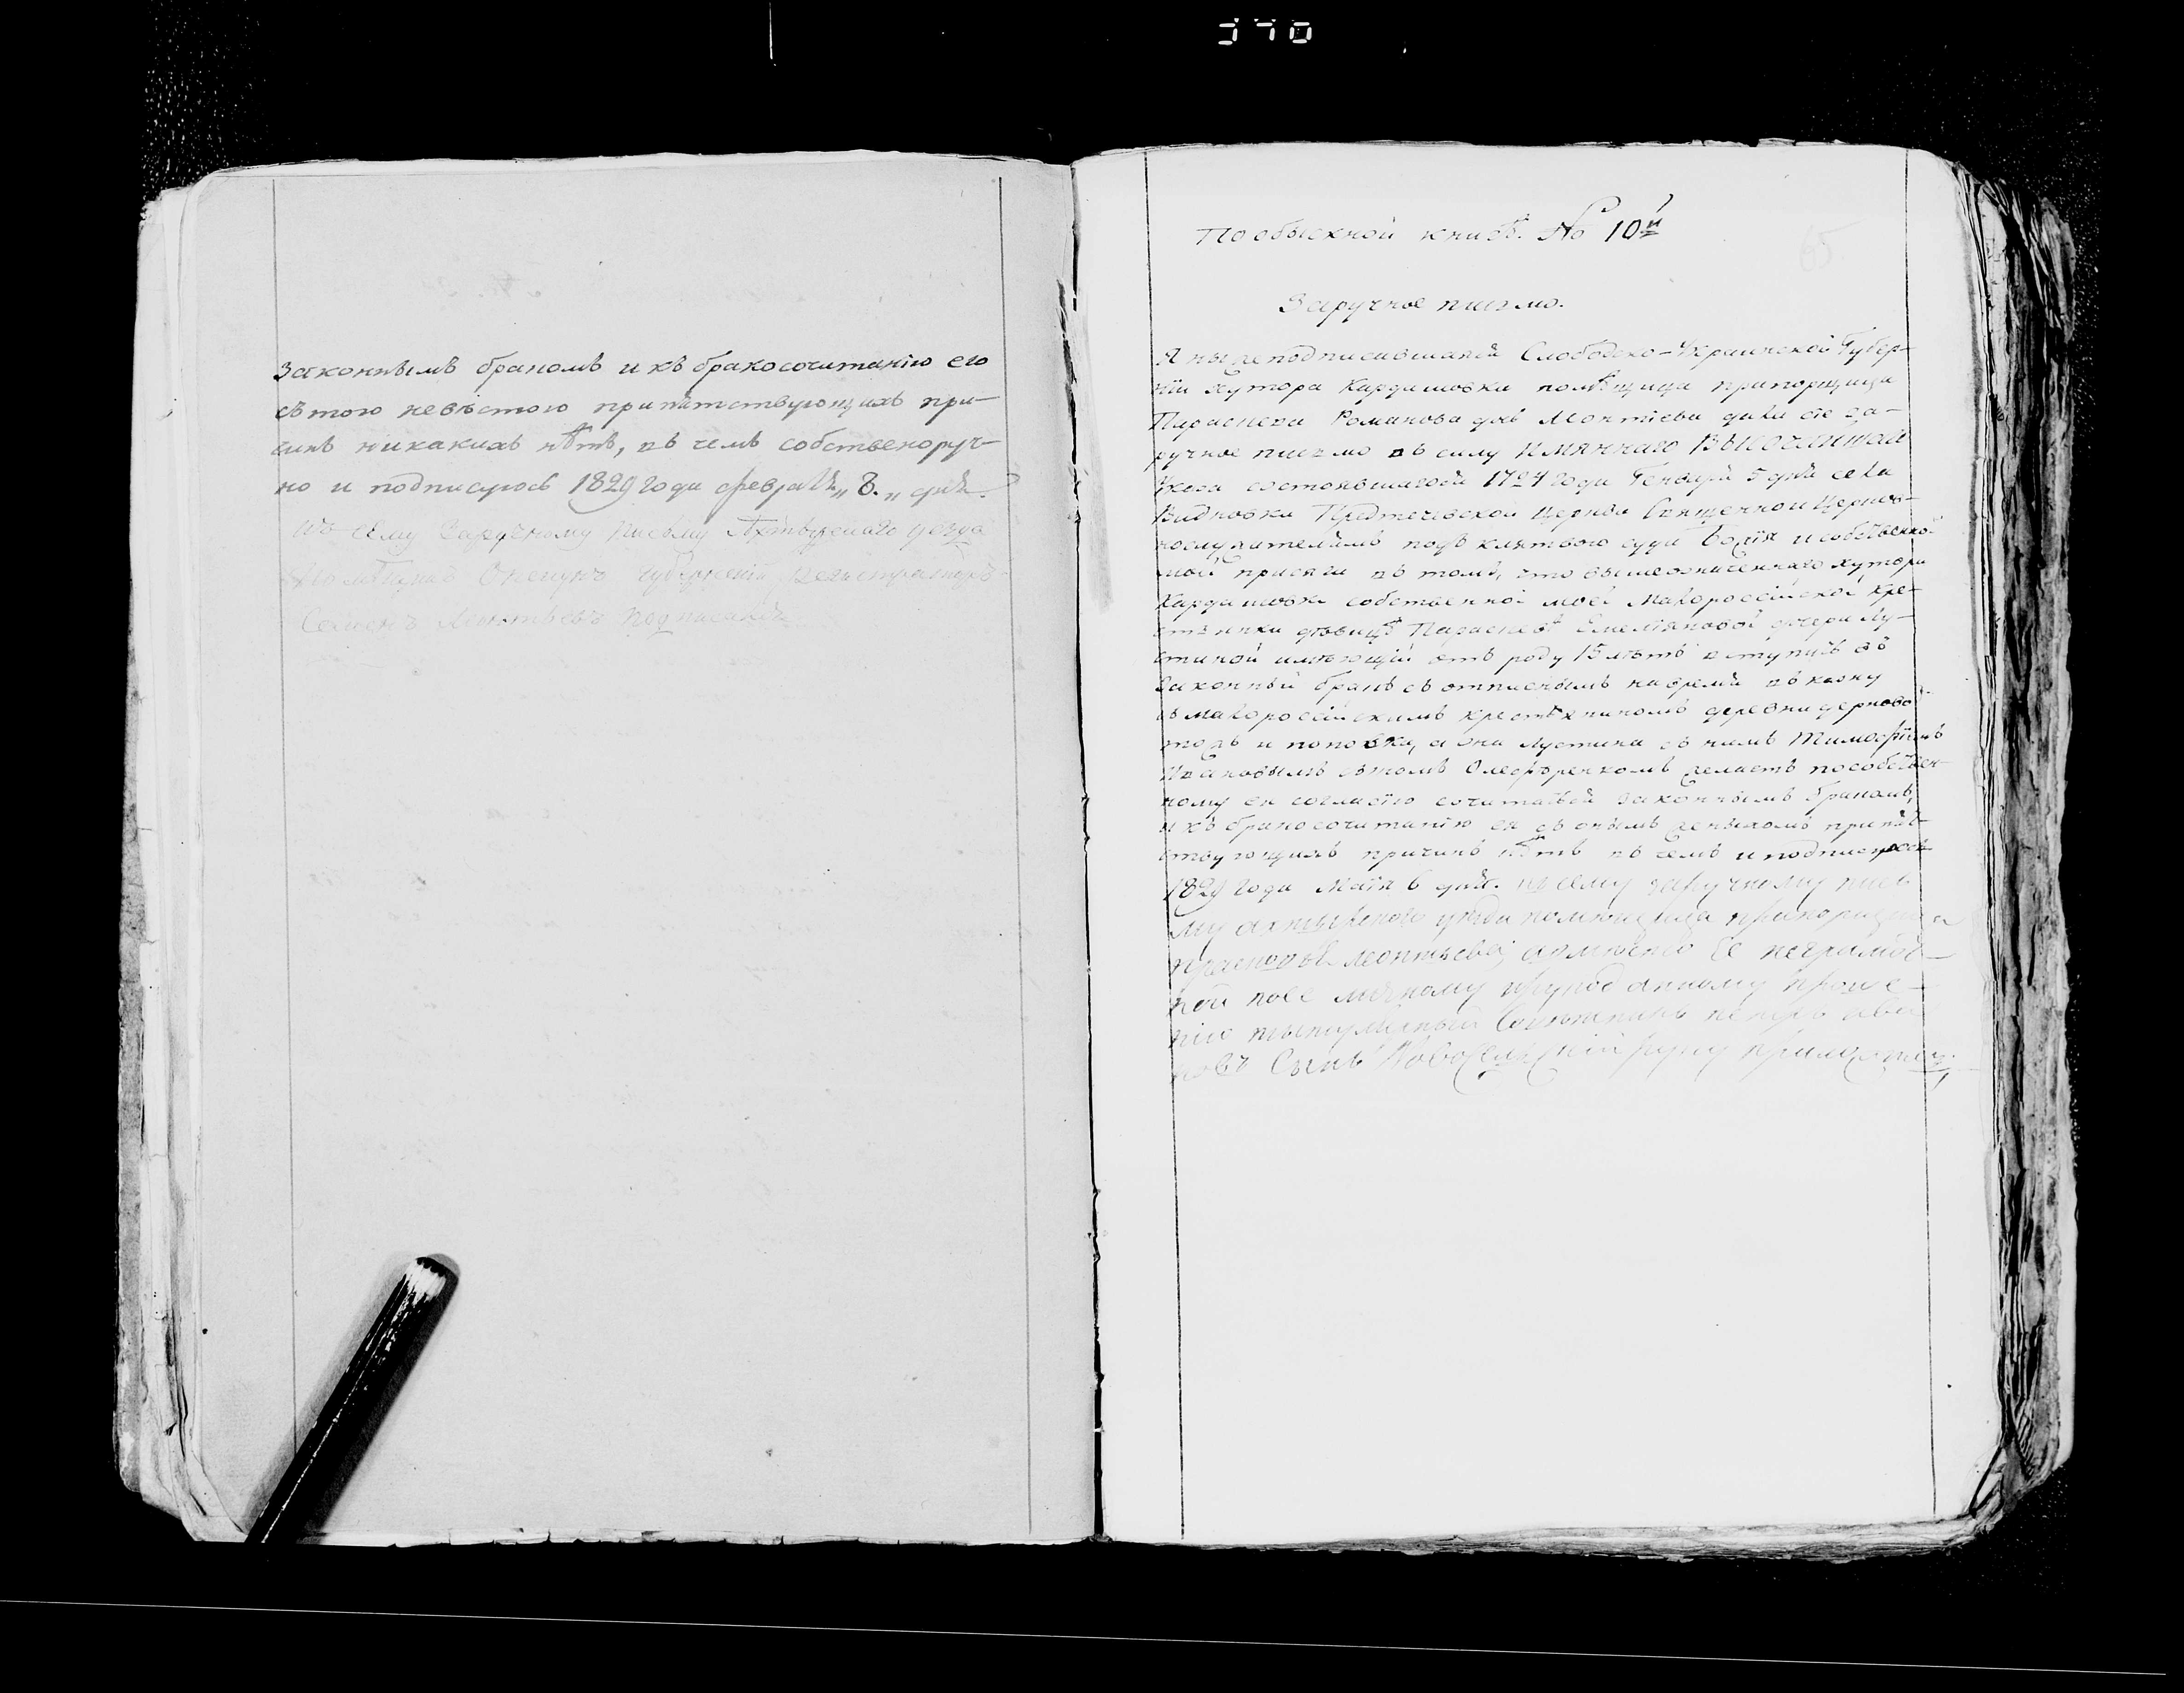 законнымъ бракомъ и къ бракосочитанію его
сътою невѣстою припятствующихъ при-
чинъ никакихъ нѣтъ, въ чемъ собственоруч-
но и подписуюсь 1829 года февраля „8.„ дня.
къ сему заручному письму Ахтырскаго уезда
помѣщикъ Опекунъ губернскій регистраторъ
Семенъ Леонтьевъ подписался
По обыскной книгѣ. No 10й
65
Заручное письмо.
Я нижеподписавшаяся Слободско-Украинской Губер-
ніи хутора Кардашовки помѣщица прапорщица
Параскева Романова Леонтіева дала сіе за-
ручное письмо въ силу Имяннаго ВЫСОЧАЙШАГО
Указа состоявшагося 1724 года Генваря 5 дня села
Видновки Предтечевской Церкви Священно и Церков-
нослужителямъ подъ клятвою суда Божія и собственной
моей присяги въ томъ, что вышеозначеннаго хутора
Кардашовки собственной моей Малороссійской кре-
стянки дѣвицѣ Параскевѣ Емелъяновой дочери Лу-
ститой имѣющій отъ роду 15 лѣтъ вступить въ
законный бракъ съ отписнымъ на время въ казну
малоросійскимъ крестяниномъ деревни
и поповки, а она съ нимъ Тимофѣемъ
Ивановымъ сыномъ Олеференкомъ желаетъ по собствен-
ному ея согласію сочитатся законнымъ бракомъ,
и къ бракосочитанію ея съ онымъ женихомъ припят-
ствующихъ причинъ нѣтъ въ чемъ и подписуюсь
1829 года Маія 6 дня. къ сему заручному пись
му ахтырского уезда помѣщица прапорщица
Леонтьева, а вместо Ее неграмот-
ной по ее личному прозбе

Сынъ руку приложилъ